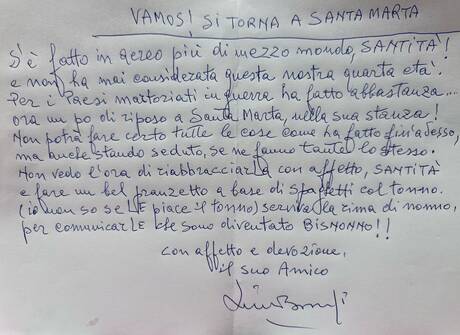 VAMOS! SI TORNA A SANTA MARTA
S'è fatto in aereo più di mezzo mondo, SANTITÀ!
e non ha mai considerata questa nostra quarta età.
Per i Paesi martoriati in guerra ha fatto abbastanza...
ora un po di riposo a Santa Marta, nella sua stanza!
Non potrà fare certo tutte le cose come ha fatto fin'adesso,
ma anche stando seduto, se ne fanno tante lo stesso.
Non vedo l'ora di riabbracciarLA con affetto, SANTITÀ
e fare un bel pranzetto a base di spaghetti col tonno.
(io non so se LE piace il tonno) serviva la rima di nonno,
per comunicarLE che sono diventato BISNONNO!!
con affetto e devozione,
il suo Amico